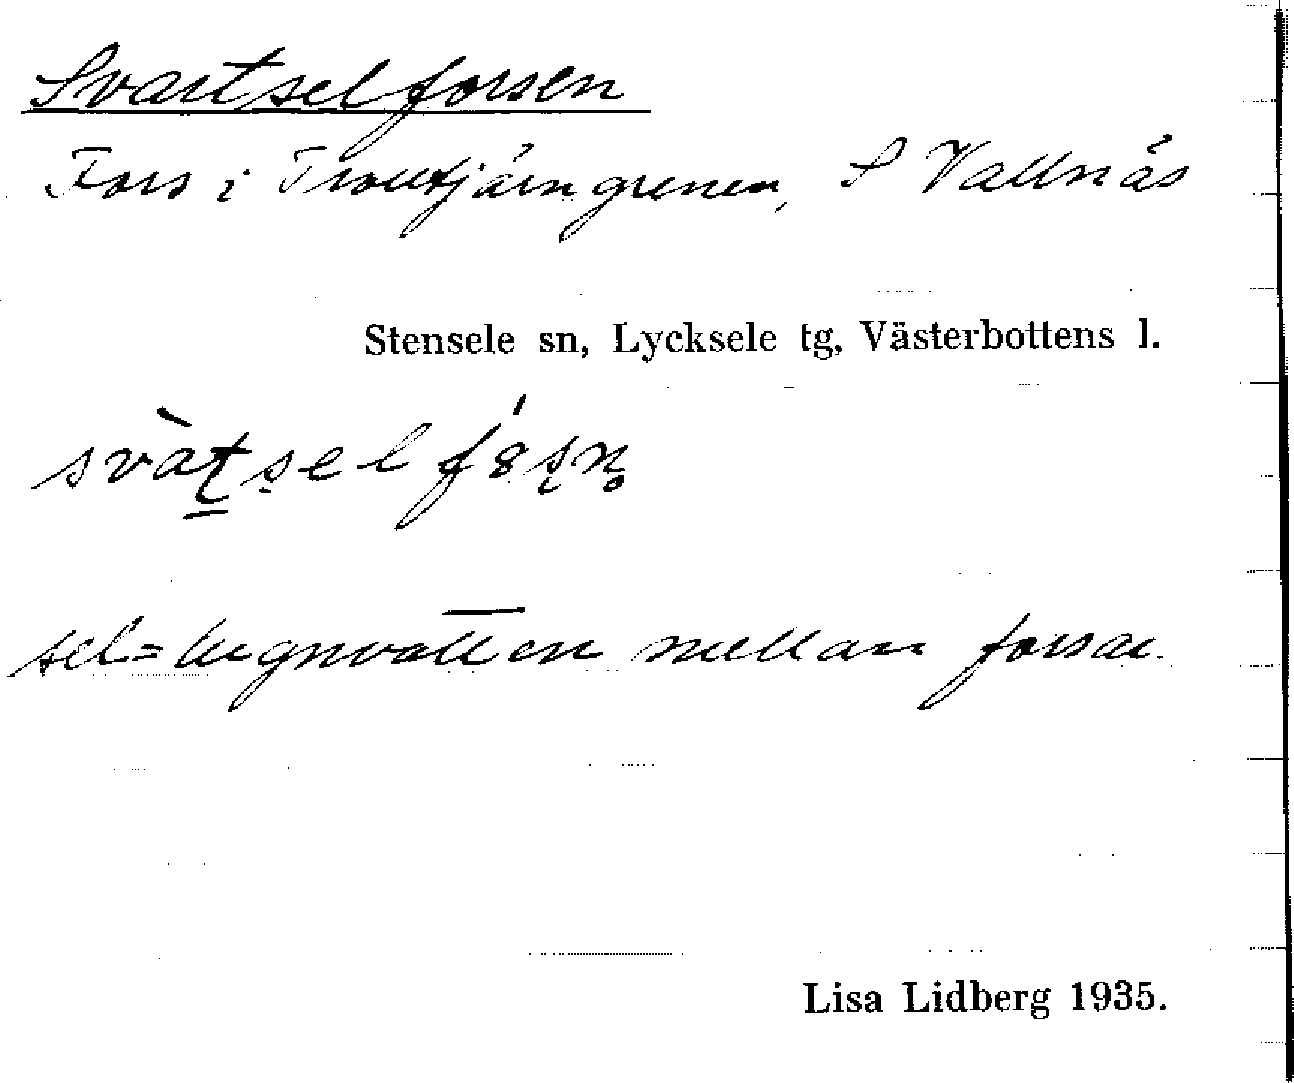 Svartselforsen
Fors i Trolltjärngrenen, S Vallnäs
Stensele sn, Lycksele tg, Västerbottens l.
svàt̲ṣelfó̩ṣn̥
sel = lugnvatten mellan forsar.
Lisa Lidberg 1935.